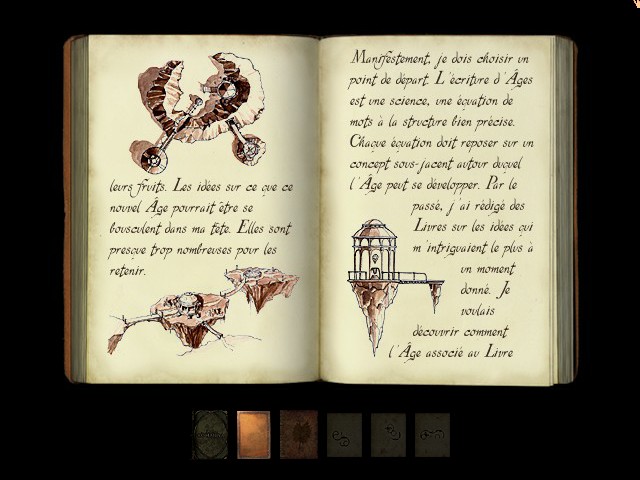 leurs fruits. Les idées sur ce que ce
nouvel Âge pourrait être se
bousculent dans ma tête. Elles sont
presque trop nombreuses pour les
retenir.
Manifestement, je dois choisir un
point de départ. L'écriture d'Âges
est une science, une équation de
mots à la structure bien précise.
Chaque équation doit reposer sur un
concept sous-jacent autour duquel
l'Âge peut se développer. Par le
passé, j'ai rédigé des
Livres sur les idées qui
m'intriguaient le plus à
un moment
donné. Je
voulais
découvrir comment
l'Âge associé au Livre